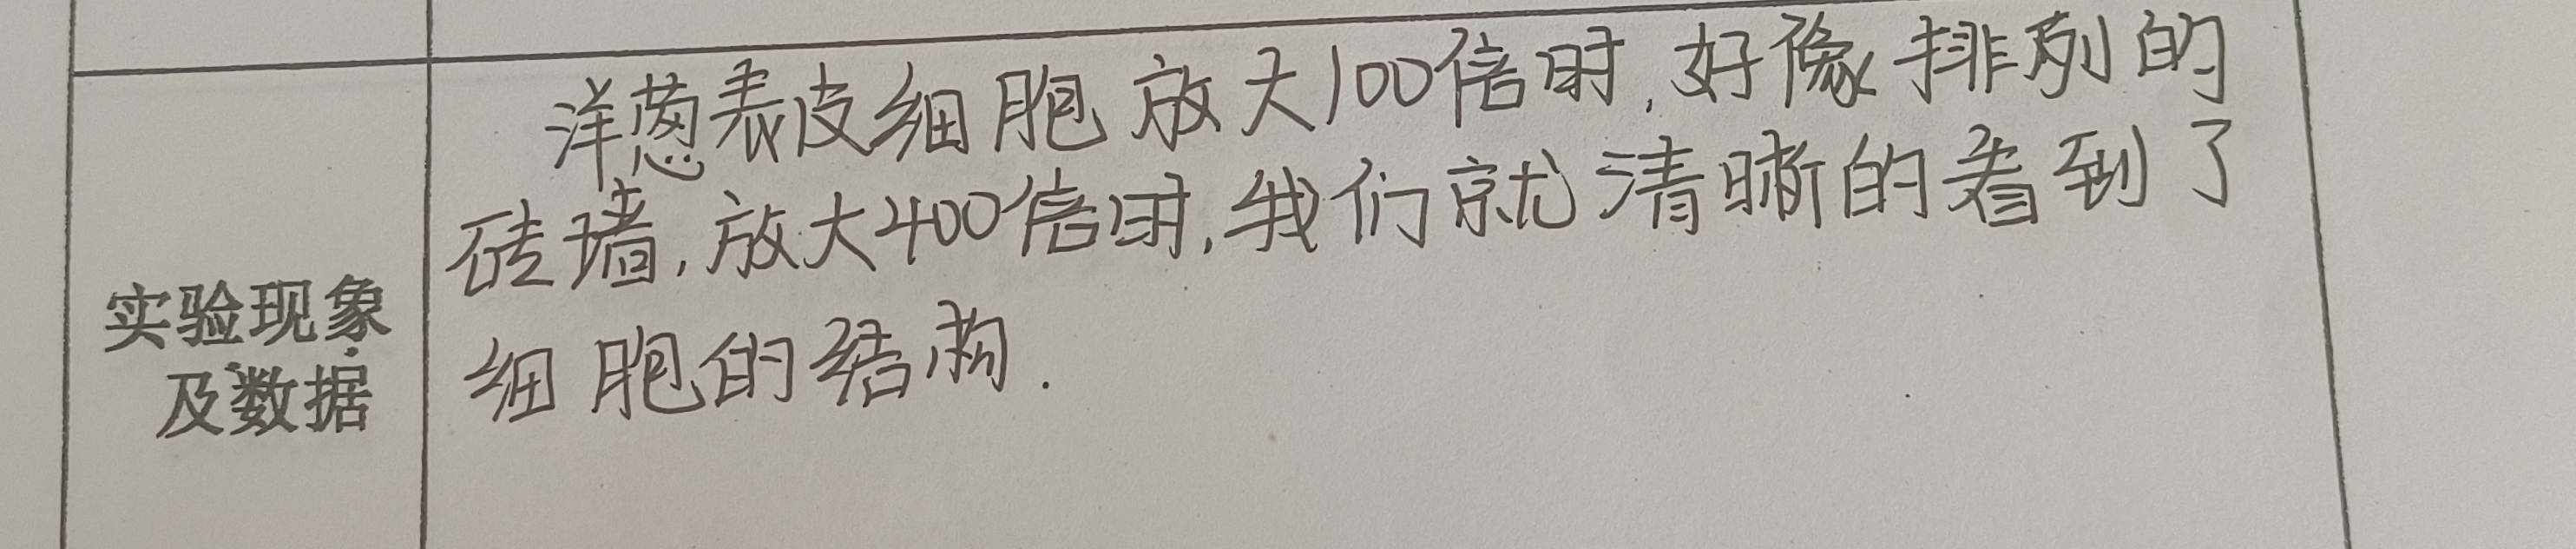 洋葱表皮细胞放大100倍时,好像排列的
砖墙,放大400倍时,我们就清晰的看到了
细胞的结构.
实验现象
及数据